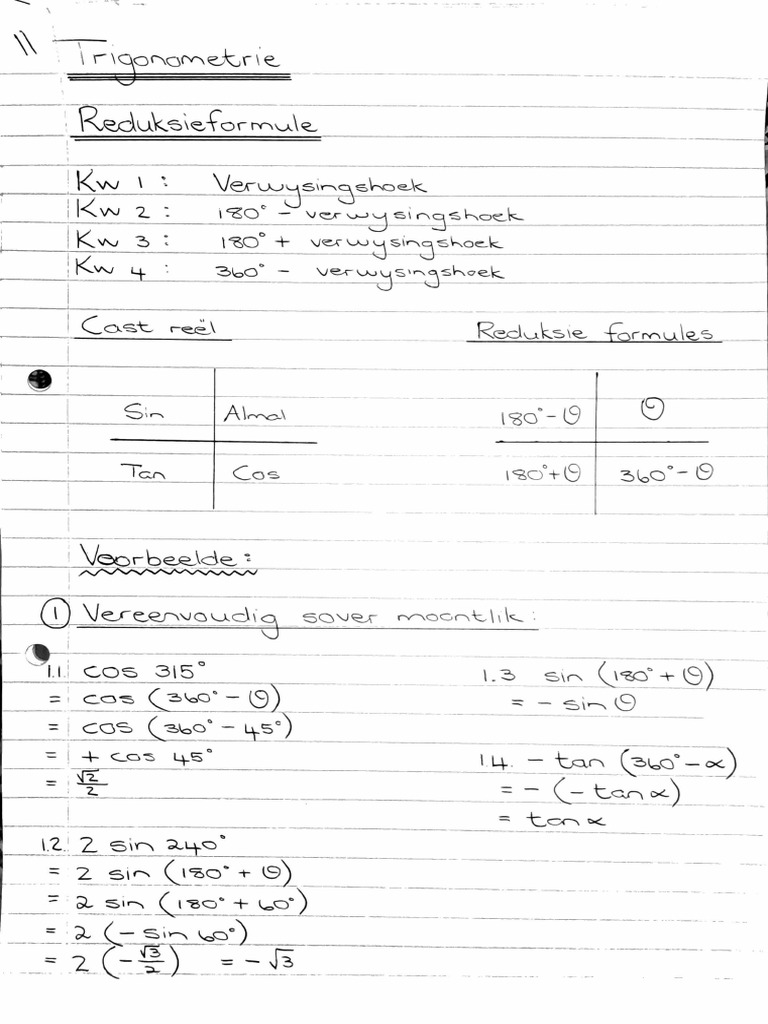 11
Trigonometrie
Reduksieformule
Kw 1 : Verwysingshoek
Kw 2 : 180° - verwysingshoek
Kw 3 : 180° + verwysingshoek
Kw 4 : 360° - verwysingshoek
Cast reël
Sin Almal
Tan Cos
Reduksie formules
180°-Θ Θ
180°+Θ 360°-Θ
Voorbeelde:
① Vereenvoudig sover moontlik:
1.1. cos 315°
= cos (360° - Θ)
= cos (360° - 45°)
= + cos 45°
= √2/2
1.2. 2 sin 240°
= 2 sin (180° + Θ)
= 2 sin (180° + 60°)
= 2 (- sin 60°)
= 2 (-√3/2) = -√3
1.3 sin (180° + Θ)
= - sin Θ
1.4. - tan (360° - α)
= - (- tan α)
= tan α